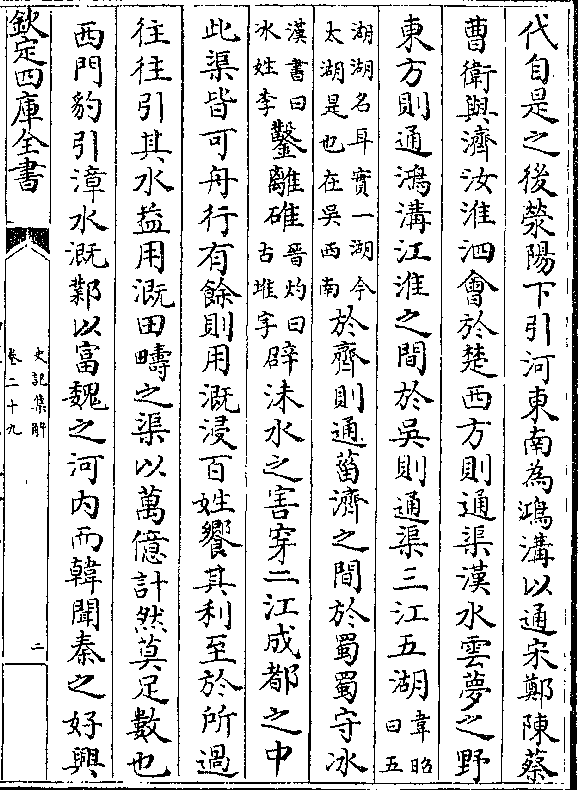 代自是之後滎陽下引河東南為鴻溝以通宋鄭陳蔡
曹衛與濟汝淮泗會於楚西方則通渠漢水雲夢之野
東方則通鴻溝江淮之間於吳則通渠三江五湖韋昭曰五
湖湖名耳實一湖今太湖是也在吳西南於齊則通菑濟之間於蜀蜀守冰
漢書曰冰姓李鑿離碓晉灼曰古堆字辟沬水之害穿二江成都之中
此渠皆可舟行有餘則用溉浸百姓饗其利至於所過
往往引其水益用溉田疇之渠以萬億計然莫足數也
西門豹引漳水溉鄴以富魏之河内而韓聞秦之好興
欽定四庫全書
史記集解
卷二十九
二